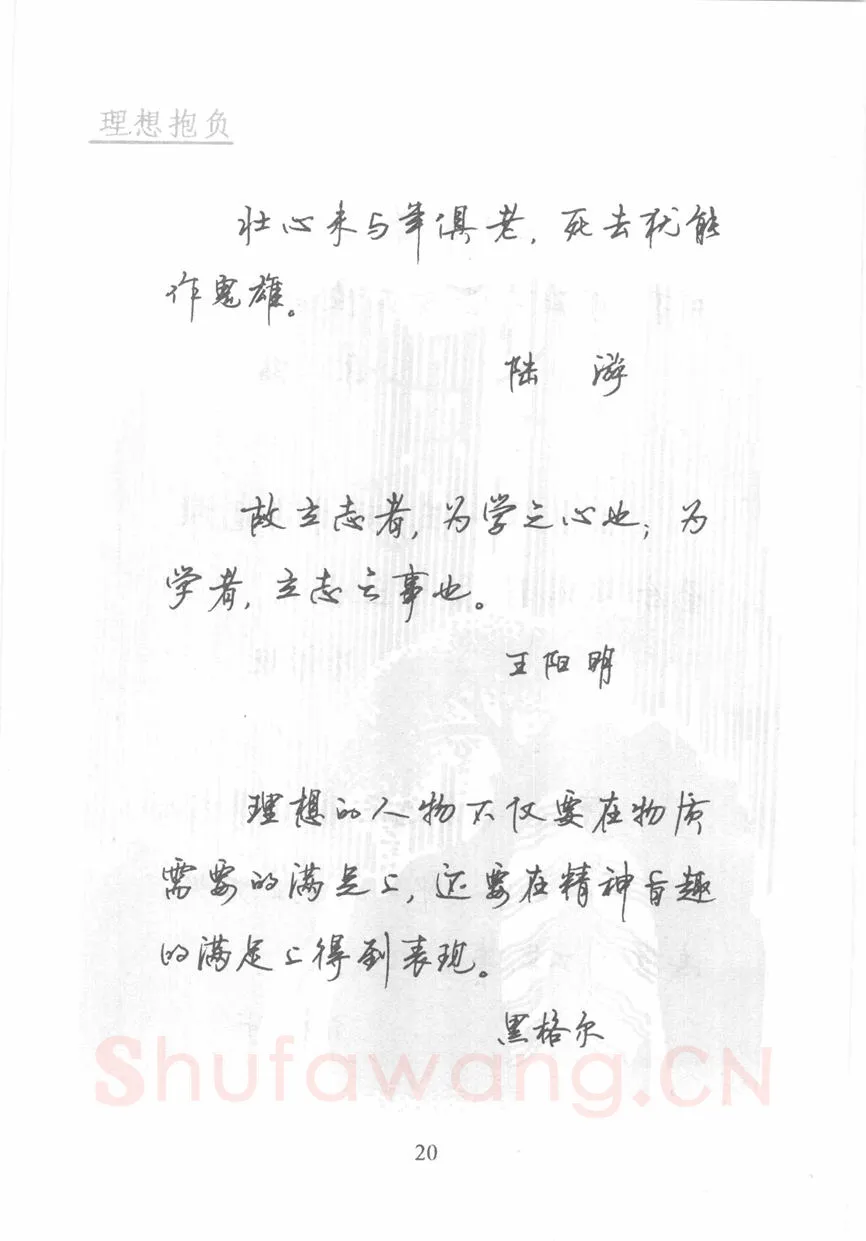 理想抱负
壮心未与年俱老，死去犹能
作鬼雄。
陆 游
故立志者，为学之心也；为
学者，立志之事也。
王阳明
理想的人物不仅要在物质
需要的满足上，还要在精神旨趣
的满足上得到表现。
黑格尔
Shufawang.CN
20